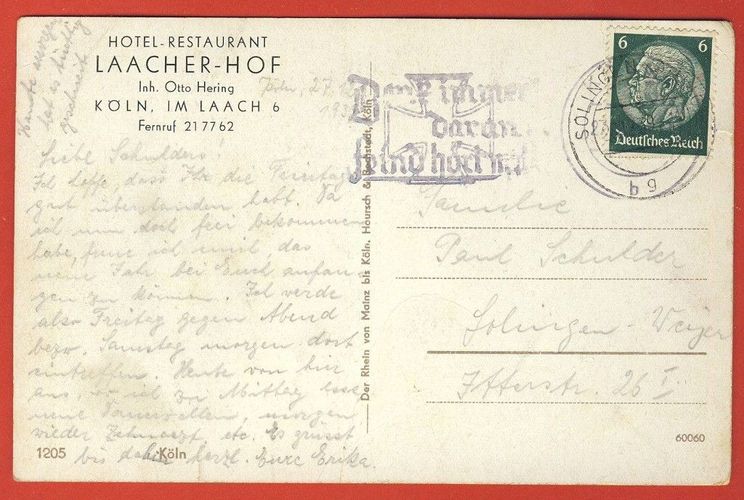 Heute morgen
hat es tüchtig
geschneit
HOTEL-RESTAURANT
LAACHER-HOF
Inh. Otto Hering
KÖLN, IM LAACH 6
Fernruf 217762
Köln, 27.
Liebe Schulders!
Ich hoffe, dass Ihr die Feiertage
gut überstanden habt. Da
ich nun doch frei bekommen
habe, freue ich mich, das
neue Jahr bei Euch anfan-
gen zu können. Ich werde
also Freitag gegen Abend
bezw. Samstag morgen dort
eintreffen. Heute von hier
aus, wo ich zu Mittag esse
neue
wieder Zahnarzt, etc. Es grüsst
bis daher herzl. Eure Erika.
1205 Köln
Der Rhein von Mainz bis Köln. Hoursch & Bechstedt, Köln
Denk immer
daran..
Feind hört mit
SOLINGEN
b 9
6 6
Deutsches Reich
Familie
Paul Schulder
Solingen-Weyer
Itterstr. 26 I
60060